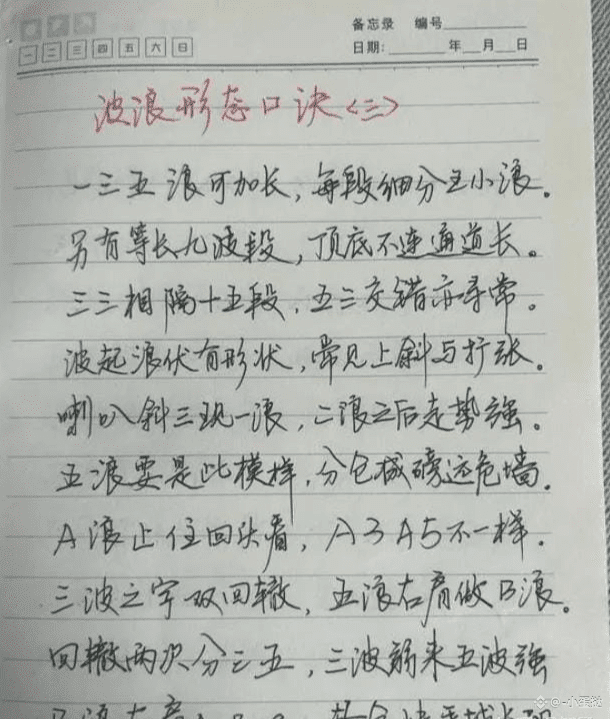 备忘录 编号
一 二 三 四 五 六 日
日期: 年 月 日
波浪形态口诀<三>
一三五浪可加长，每段细分五小浪。
另有等长九波段，顶底不连通道长。
三三相隔十五段，五三交错亦寻常。
波起浪伏有形状，常见上斜与扩张。
喇叭斜三现一浪，二浪之后走势强。
五浪要是此模样，分仓减磅远危墙。
A浪止住回头看，A3A5不一样.
三波之字双回辙，五浪右肩做B浪。
回辙两次分三五，三波弱来五波强